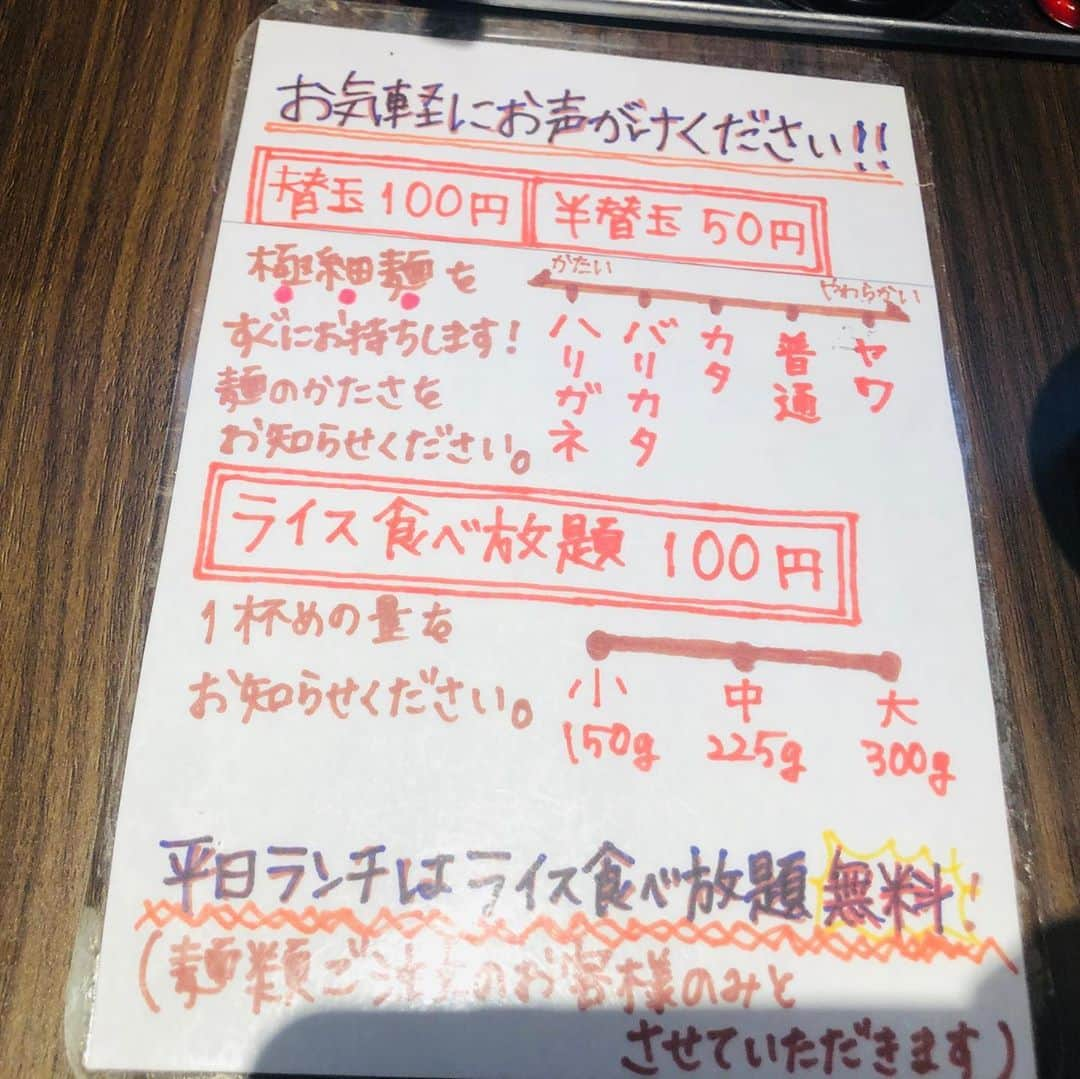 お気軽にお声がけください!!
替玉100円 半替玉50円
かたい やわらかい
ハリガネ バリカタ カタ 普通 ヤワ
極細麺を
すぐにお持ちします!
麺のかたさを
お知らせください。
ライス食べ放題 100円
1杯めの量を
お知らせください。
小 中 大
150g 225g 300g
平日ランチはライス食べ放題無料!
(麺類ご注文のお客様のみと
させていただきます)